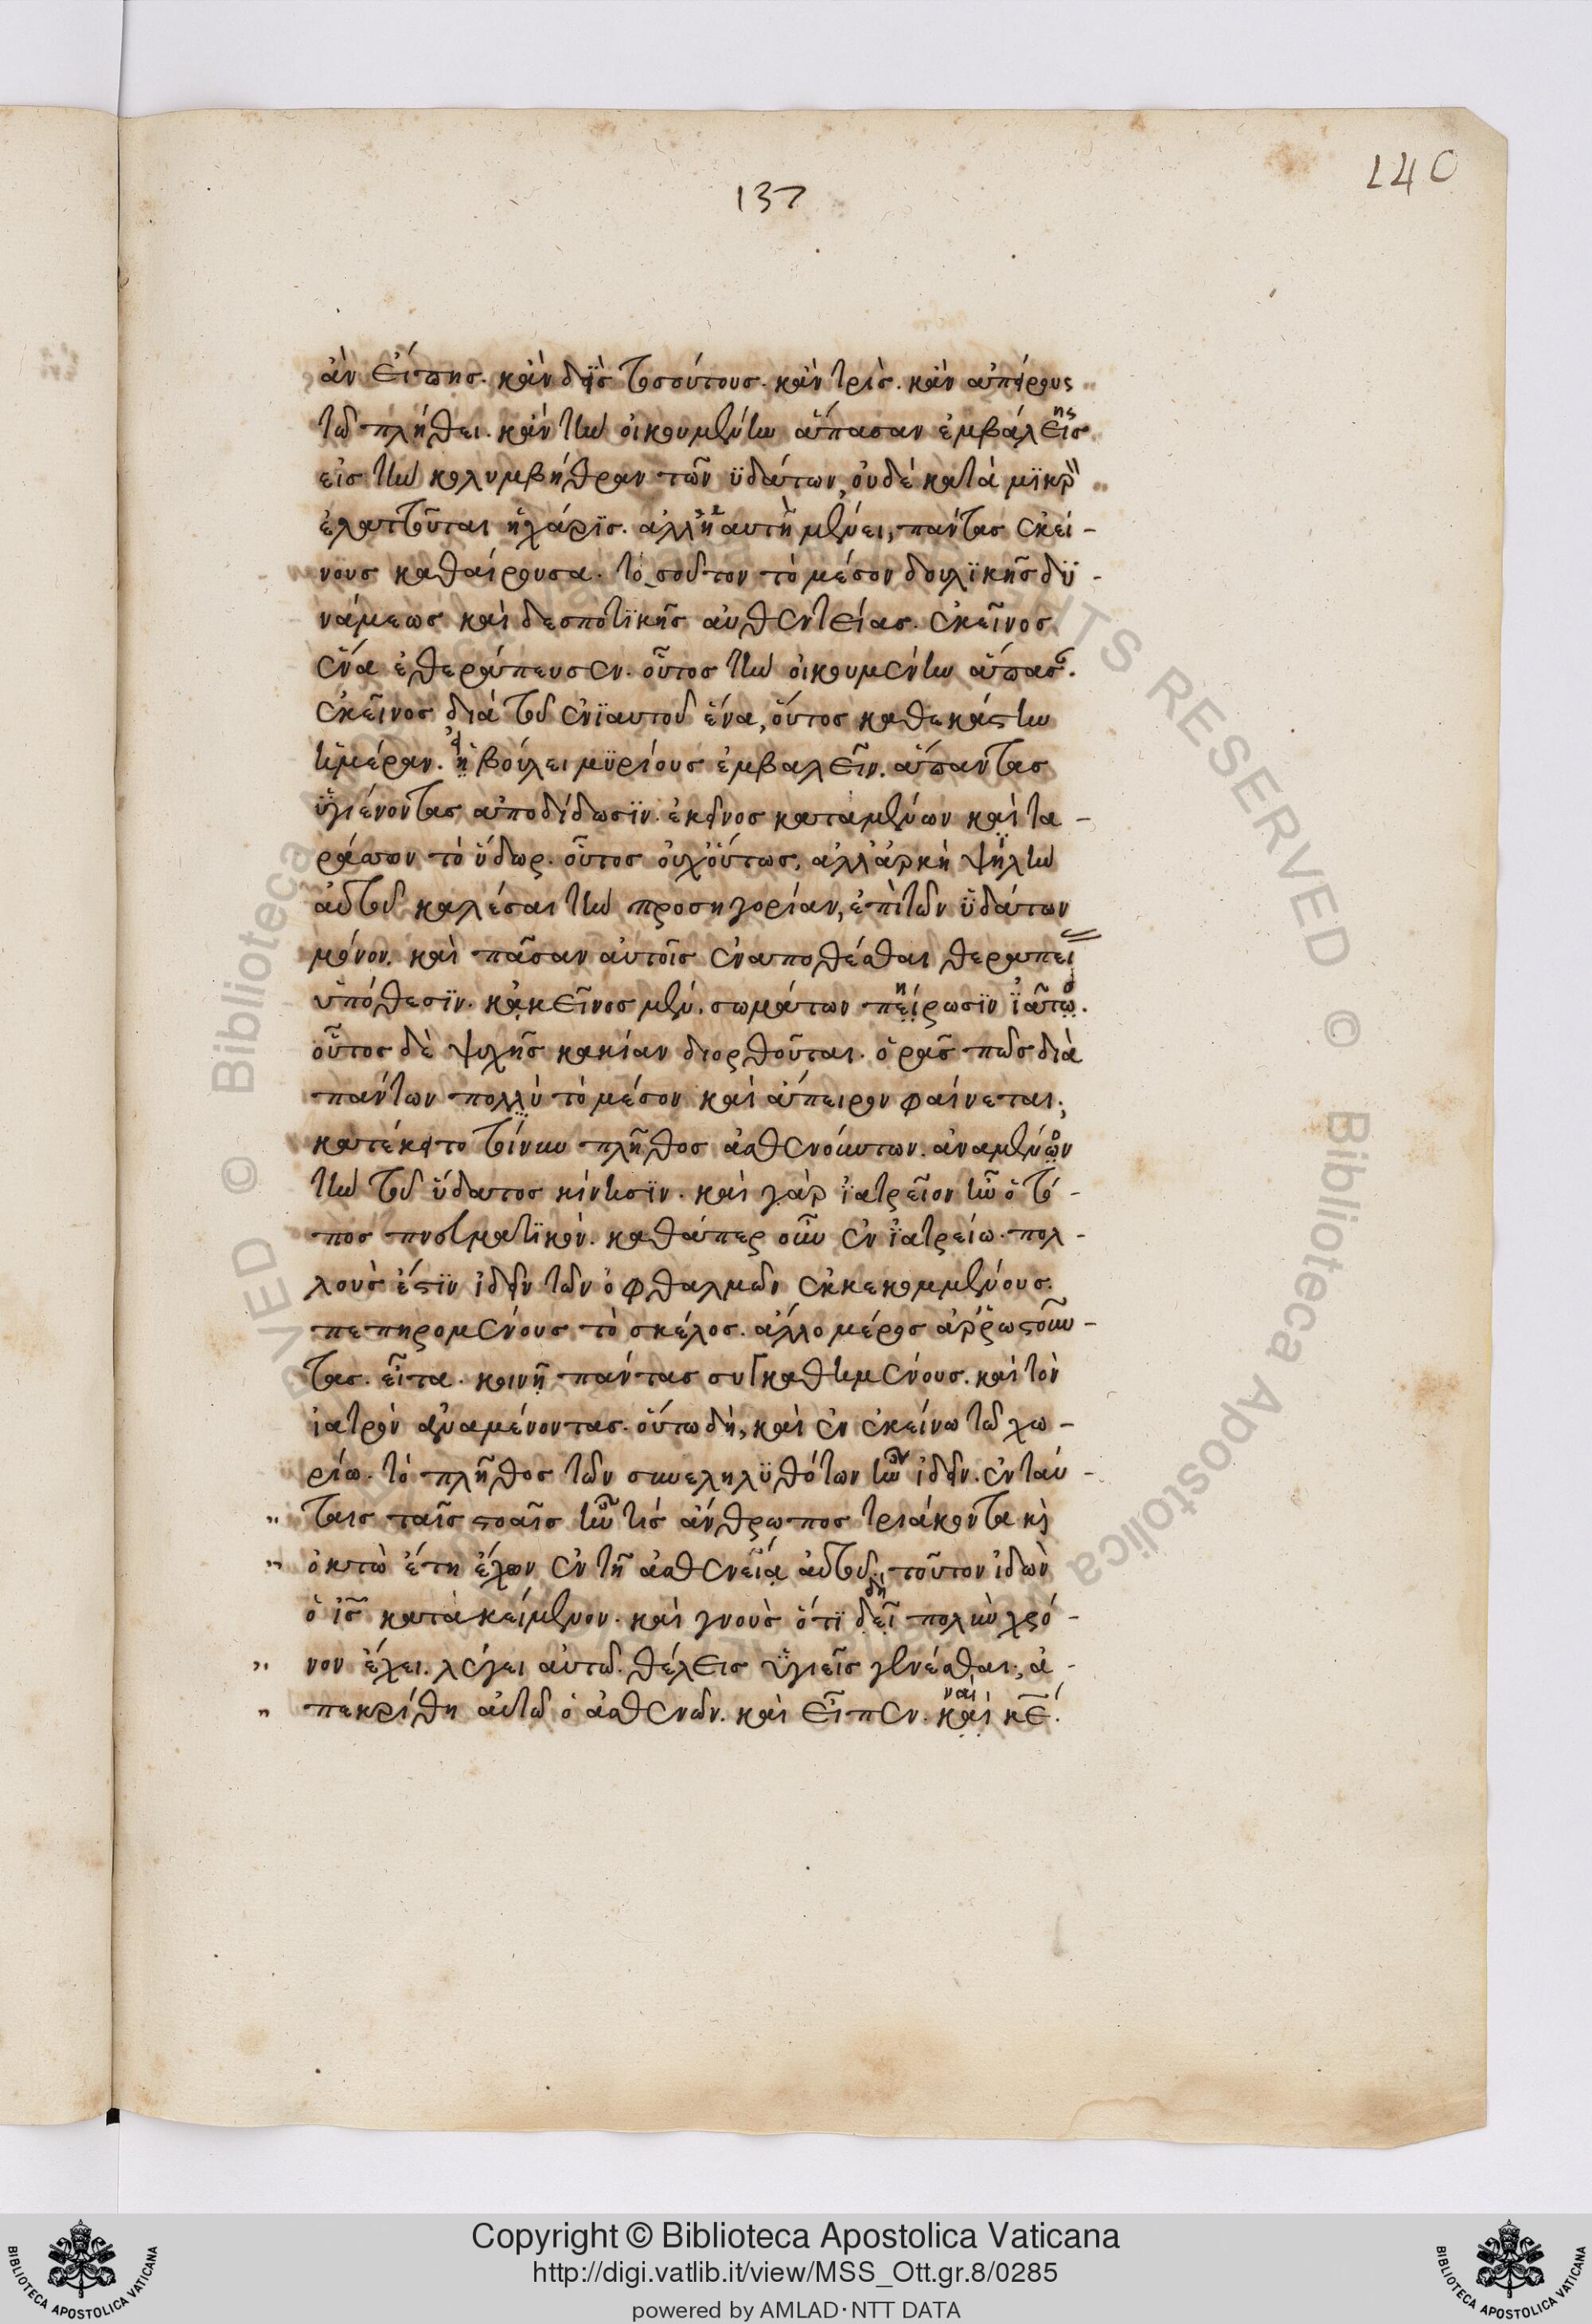 137
140
ἂν εἴπης. κἂν δὶς τοσούτους. κἂν τρὶς. κἂν ἀπείρους
τῶ πλήθει. κἂν τὴν οἰκουμένην ἅπασαν ἐμβάλεις
εἰς τὴν κολυμβήθραν τῶν ὑδάτων, οὐδὲ κατὰ μικρὸν
ἐλαττοῦται ἡ χάρις. ἀλλ' ἡ αυτὴ μένει, πάντας ἐκεί-
νους καθαίρουσα. τοσοῦτον τὸ μέσον δουλικῆς δυ-
νάμεως καὶ δεσποτικῆς αὐθεντείας. ἐκεῖνος
ἕνα ἐθεράπευσεν. οὗτος τὴν οἰκουμένην ἅπασαν.
ἐκεῖνος διὰ τοῦ ἐνιαυτοῦ ἕνα, οὗτος καθεκάστην
ἡμέραν. εἰ βούλει μυρίους ἐμβαλεῖν. ἅπαντας
ὑγιένοντας ἀποδίδωσιν. ἐκεῖνος καταμένων καὶ τα-
ράττων τὸ ὕδωρ. οὗτος οὐχ οὕτως, ἀλλ' ἀρκὴ ψηλὴν
αὐτοῦ καλέσαι τὴν προσηγορίαν, ἐπὶ τῶν ὑδάτων
μόνον. καὶ πᾶσαν αὐτοῖς ἐναποθέσθαι θεραπεί
ὑπόθεσιν. κἀκεῖνος μὲν. σωμάτων πήρωσιν ἰᾶτο.
οὗτος δὲ ψυχῆς κακίαν διορθοῦται. ὁρᾶς πῶς διὰ
πάντων πολλὺ τὸ μέσον καὶ ἄπειρον φαίνεται;
κατέκειτο τίνυν πλῆθος ἀσθενούντων. ἀναμένων
τὴν τοῦ ὕδατος κίνησιν. καὶ γὰρ ἰατρεῖον ἦν ὁ τό-
πος πνευματικόν. καθάπερ οὖν ἐν ἰατρείω. πολ-
λοὺς ἔστιν ἰδεῖν τῶν ὀφθαλμῶν ἐκκεκομμένους.
πεπηρομένους τὸ σκέλος. ἄλλο μέρος ἀρρωστοῦν-
τας. εἶτα. κοινῆ πάντας συγκαθημένους. καὶ τὸν
ἰατρὸν ἀναμένοντας. οὕτω δὴ, καὶ ἐν ἐκείνω τῶ χω-
ρίω. τὸ πλῆθος τῶν συνεληλυθότων ἦν ἰδεῖν. ἐν ταύ-
ταις ταῖς στοαῖς ἦν τὶς ἄνθρωπος τριάκοντα κὶ
ὀκτὼ ἔτη ἔχων ἐν τῆ ἀσθενείᾳ αὐτοῦ, τοῦτον ἰδὼν
ὁ ἰς κατακείμενον. καὶ γνοὺς ὅτι δὴ πολὺν χρό-
νον ἔχει. λέγει αὐτῶ. θέλεις ὑγιεῖς γενέσθαι; ἀ-
πεκρίθη αὐτῶ ὁ ἀσθενῶν. καὶ εἶπεν. ναὶ κε.
Copyright © Biblioteca Apostolica Vaticana
http://digi.vatlib.it/view/MSS_Ott.gr.8/0285
powered by AMLAD·NTT DATA